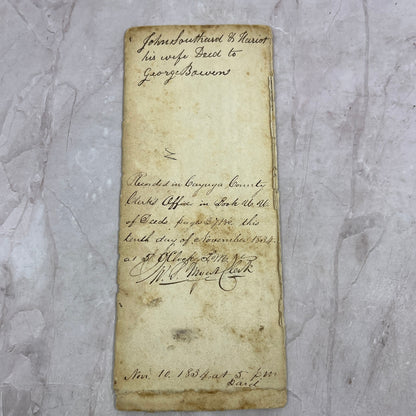 John Southard & Hariot
his wife Deed to
George Bowens
Recorded in Cayuga County
Clerks Office in Book
of Deeds page this
tenth day of November 1834.
at 5 O'Clock P.M.
Clerk
Nov. 10. 1834 at 5. P.M.
Paid